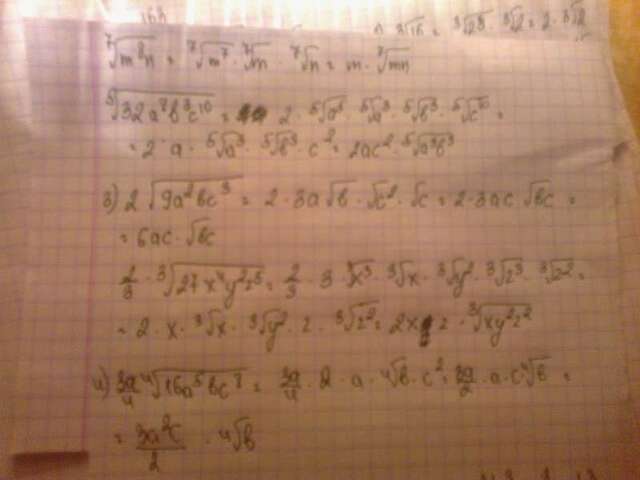 ∛16 = ∛2³ · ∛2 = 2 · ∛2
⁷√(m⁸n) = ⁷√m⁷ · ⁷√m · ⁷√n = m · ⁷√(mn)
⁵√(32a⁸b³c¹⁰) = 2 · ⁵√a⁵ · ⁵√a³ · ⁵√b³ · ⁵√c¹⁰ =
= 2 · a · ⁵√a³ · ⁵√b³ · c² = 2ac² · ⁵√(a³b³)
3) 2√(9a²bc³) = 2 · 3a√b · √c² · √c = 2 · 3ac √bc =
= 6ac · √bc
2/3 · ³√(27x⁴y²z⁵) = 2/3 · 3 · ³√x³ · ³√x · ³√y² · ³√z³ · ³√z² =
= 2 · x · ³√x · ³√y² · z · ³√z² = 2xz · ³√(xy²z²)
4) 3a/4 ⁴√(16a⁵bc⁸) = 3a/4 · 2 · a · ⁴√b · c² = 3a/2 · a · c ⁴√b =
= 3a²c/2 · ⁴√b